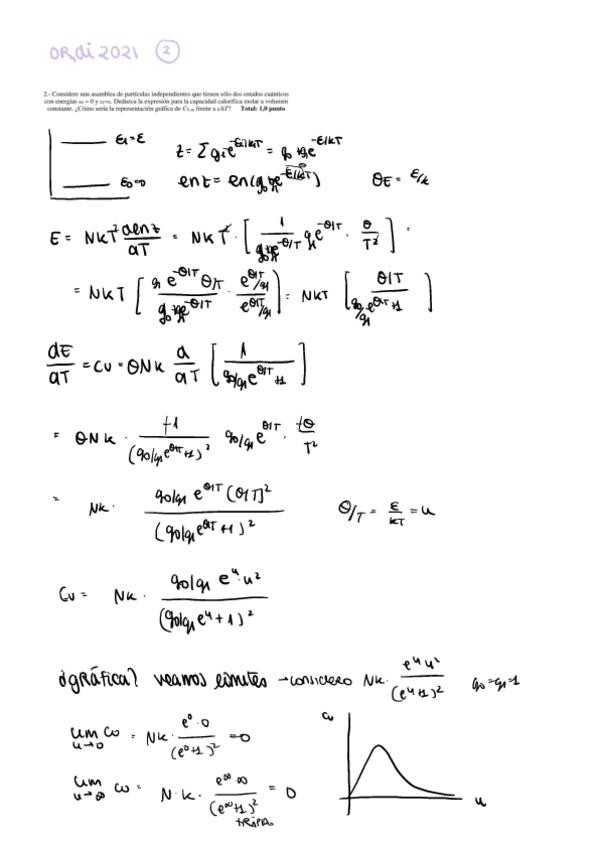 ORdi 2021 ②
2.- Considere una asamblea de partículas independientes que tienen sólo dos estados cuánticos
con energías ε₀ = 0 y ε₁=ε. Deduzca la expresión para la capacidad calorífica molar a volumen
constante. ¿Cómo sería la representación gráfica de Cv,m frente a ε/kT? Total: 1,0 punto
ε₁=ε
z = Σ gᵢ e^(-εᵢ/kT) = g₀ + g₁e^(-ε/kT)
ε₀=0
ln z = ln(g₀+g₁e^(-ε/kT)) θE = ε/k
E = NKT² dlnz/dT = NKT² · [ 1/(g₀+g₁e^(-θ/T)) g₁e^(-θ/T) · θ/T² ] =
= NKT [ g₁ e^(-θ/T) θ/T / (g₀+g₁e^(-θ/T)) · (e^(θ/T)/g₁) / (e^(θ/T)/g₁) ] = NKT [ θ/T / (g₀/g₁ e^(θ/T)+1) ]
dE/dT = Cv = θNk d/dT [ 1 / (g₀/g₁ e^(θ/T)+1) ]
= θNk · +1/(g₀/g₁e^(θ/T)+1)² g₀/g₁e^(θ/T) · +θ/T²
= Nk · g₀/g₁ e^(θ/T) (θ/T)² / (g₀/g₁e^(θ/T)+1)² θ/T = ε/kT = u
Cv = Nk · g₀/g₁ e^u·u² / (g₀/g₁e^u+1)²
¿gráfica? veamos límites → considero Nk · e^u u²/(e^u+1)² g₀=g₁=1
lim u→0 cv = Nk · e⁰·0/(e⁰+1)² = 0
Cv
lim u→∞ cv = N·k · e^∞ ∞/(e^∞+1)² = 0
u